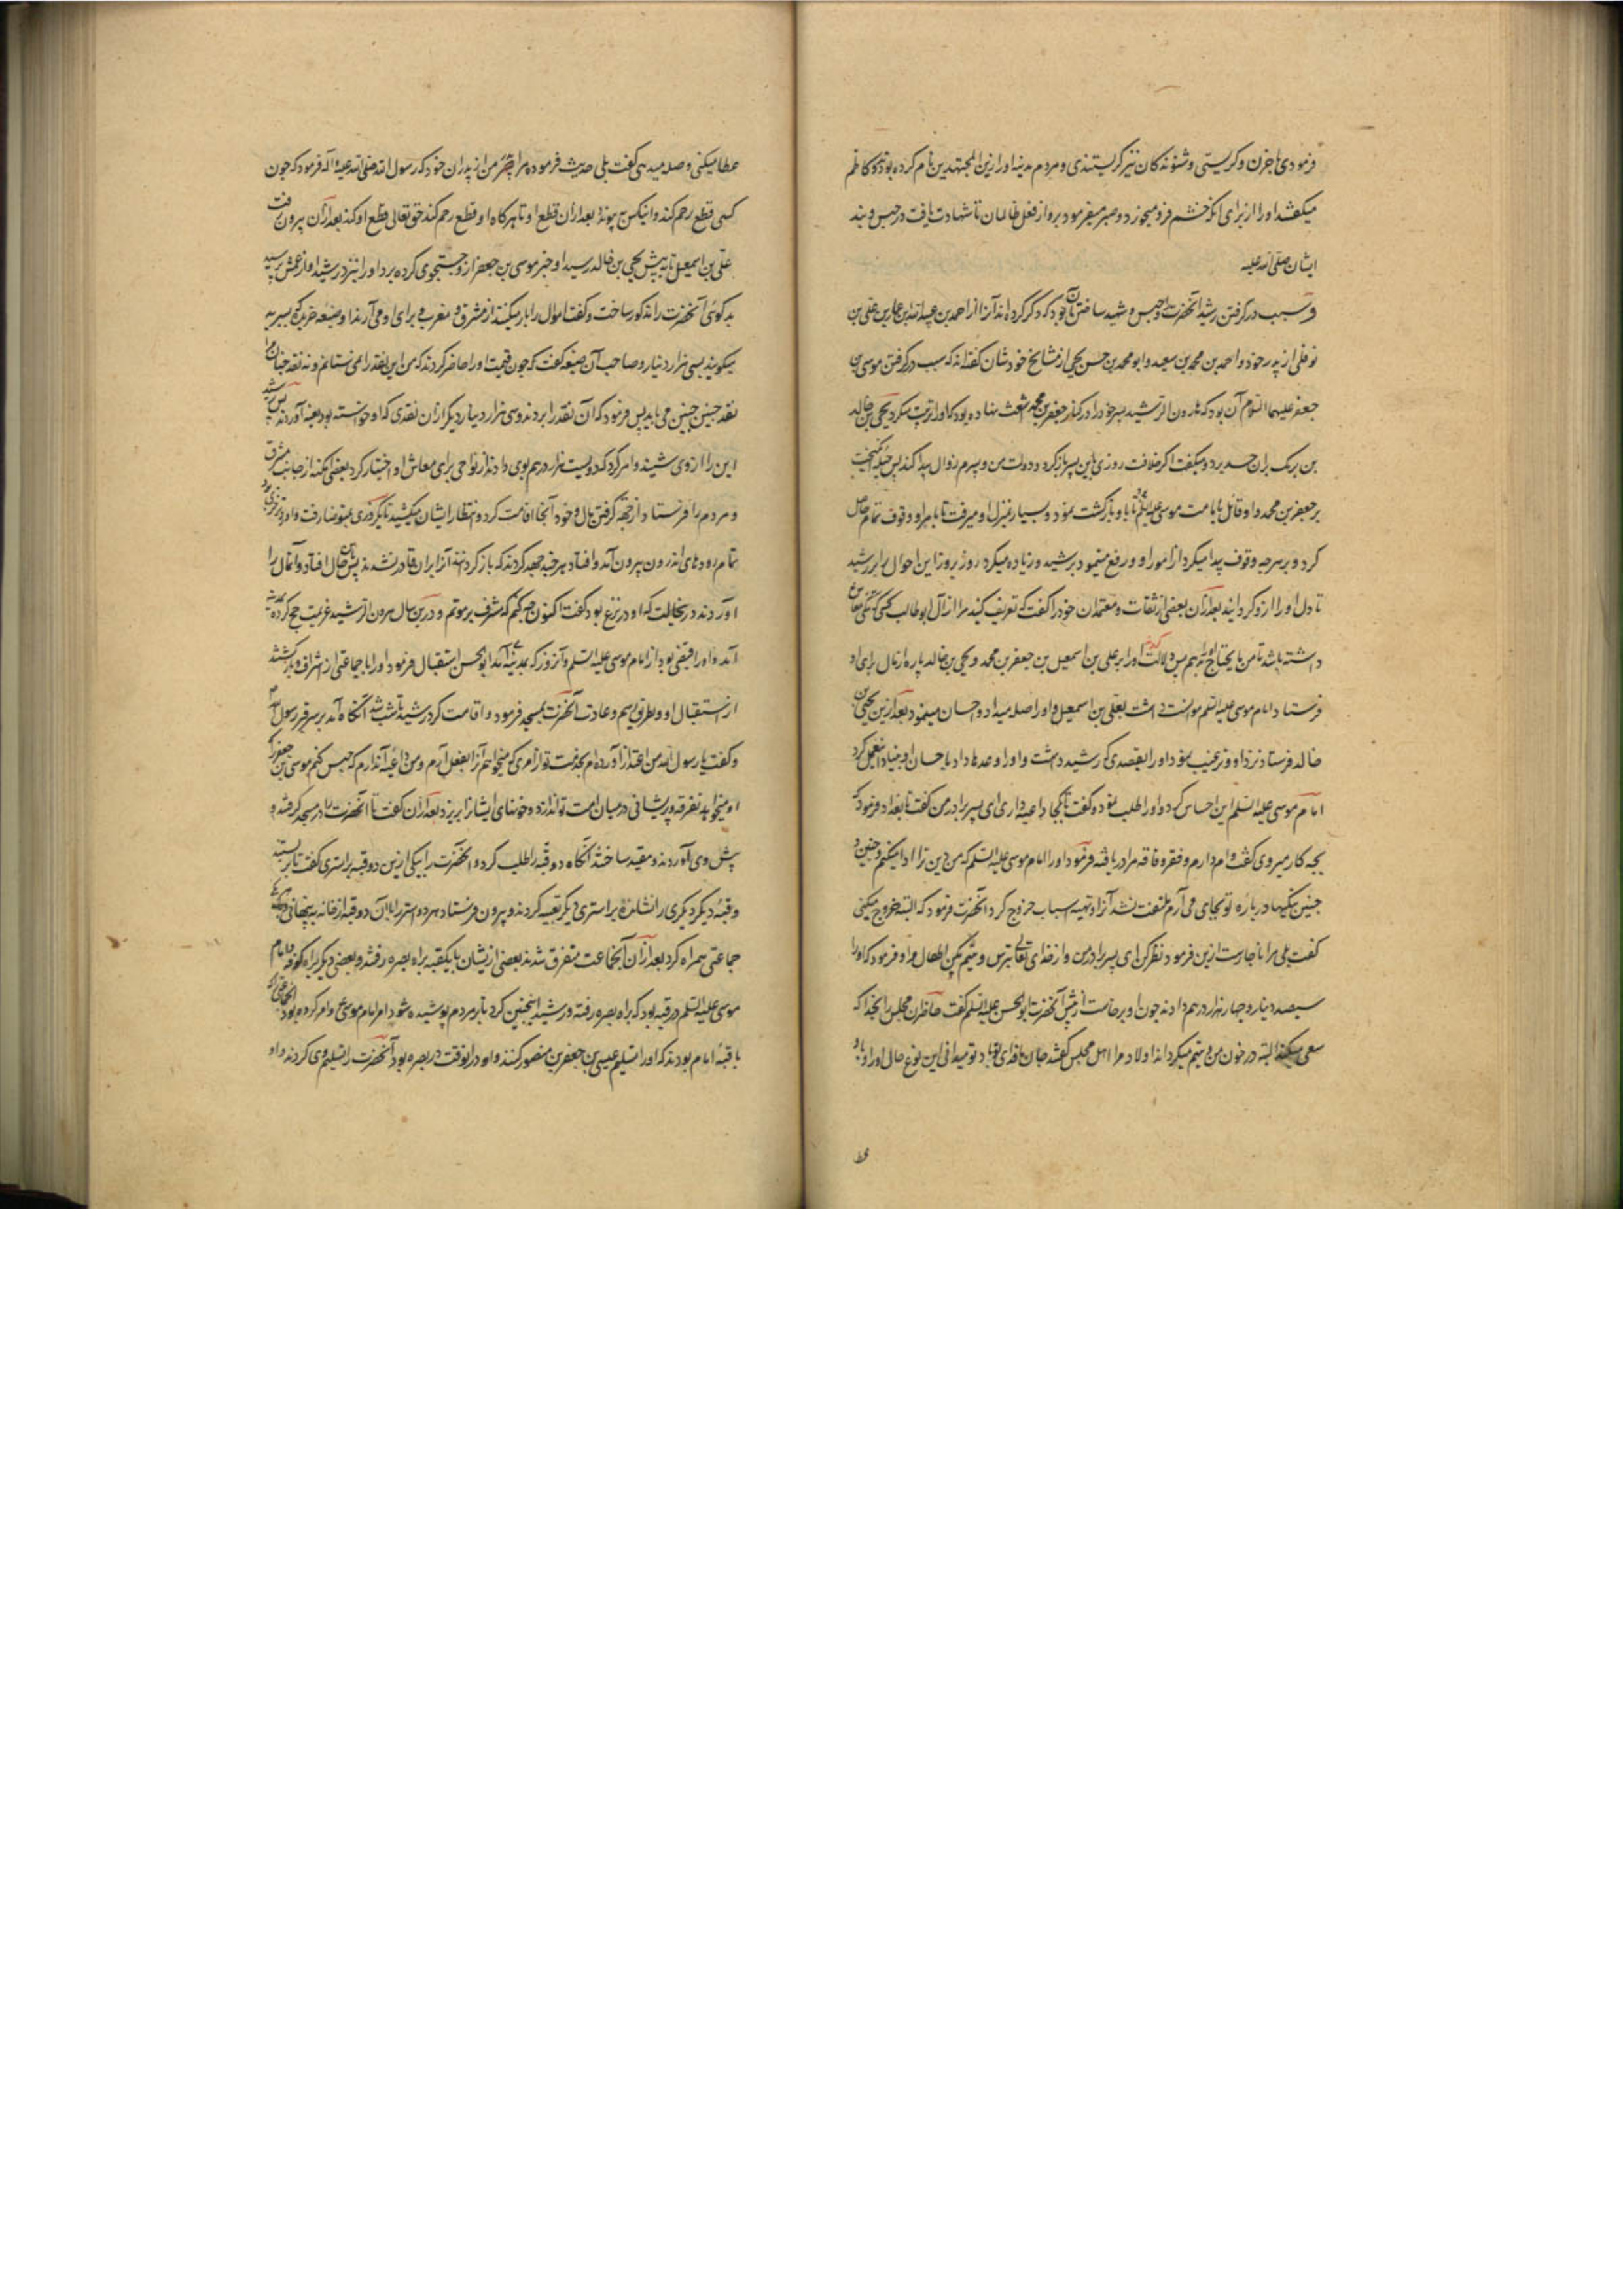 فرمودی با حزن و گریستی و شنوندگان نیز گریستندی و مردم مدینه او را زین المجتهدین نام کرده بودند و کاظم
میگفتند او را از برای آنکه خشم فرو میخورد و صبر میفرمود بر او از فعل ظالمان تا شهادت یافت در حبس و بند
ایشان صلی الله علیه
و سبب در گرفتن رشید آنحضرت را و حبس و شهید ساختن آن بود که ذکر کرده‌اند آنرا احمد بن عبیدالله بن عمار بن علی بن
نوفلی از پدر خود و احمد بن محمد بن سعید و ابو محمد بن حسن یحیی از مشایخ خودشان گفته‌اند که سبب در گرفتن موسی بن
جعفر علیهما السلام آن بود که هارون الرشید پسر خود را در کنار جعفر بن محمد اشعث نهاده بود که او را تربیت میکرد یحیی بن خالد
بن برمک بران حسد برد و میگفت اگر خلافت روزی باین پسر بازگردد دولت من و پسرم زوال پیدا کند پس حیله انگیخت
بر جعفر بن محمد و او قائل بامامت موسی علیه السلم تا با و بازگشت نمود و بسیار بمنزل او میرفت تا بامر او وقوف تمام حاصل
کرد و بر هرچه وقوف پیدا میکرد از امور او رفع مینمود برشید و زیاده میکرد روز بروز این احوال را بر رشید
تا دل او را ازو گردانید بعد ازان بعضی از ثقات و معتمدان خود را گفت که تعریف کنید مرا از آل ابو طالب کسی که تنگی معاش
داشته باشد تا من ما یحتاج او را بدهم پس دلالت کردند او را بر علی بن اسمعیل بن جعفر بن محمد و یحیی بن خالد پاره از مال برای او
فرستاد و امام موسی علیه السلم موانست داشت بعلی بن اسمعیل و او را صله میداد و احسان مینمود بعد ازین یحیی بن
خالد فرستاد نزد او و ترغیب نمود او را بقصدی که رشید داشت و او را وعده‌ها داد باحسان او بنیاد این عمل کرد
امام موسی علیه السلم این احساس کرد و او را طلب نمود و گفت تا بکجا داعیه داری ای پسر برادر من گفت تا بغداد فرمود که
بچه کار میروی گفت وام دارم و فقر و فاقه مرا دریافته فرمود او را امام موسی علیه السلم که من دین ترا ادا میکنم و چنین و
چنین نیکیها درباره تو بجای می‌آرم ملتفت نشد آنرا و تهیه اسباب خروج کرد آنحضرت فرمود که البته خروج میکنی
گفت بلی مرا ناچارست ازین فرمود نظر کن ای پسر برادر من و از خدای تعالی بترس و یتیم مکن اطفال مرا و فرمود که او را
سیصد دینار و چهار هزار درهم دادند چون او برخاست از پیش آنحضرت ابو الحسن علیه السلم گفت حاضران مجلس را بخدا که
سعی میکند البته در خون من و یتیم میگرداند اولاد مرا اهل مجلس گفتند جان ما فدای تو باد تو میدانی این نوع حال او را و باو
عطا میکنی و صله میدهی گفت بلی حدیث فرموده مرا پدر من از پدران خود که رسول الله صلی الله علیه و آله فرمود که چون
کسی قطع رحم کند و آنکس بپیوندد بعد ازان قطع او تا هرگاه او قطع رحم کند حق تعالی قطع او کند بعد ازان بیرون رفت
علی بن اسمعیل تا پیش یحیی بن خالد رسید او خبر موسی بن جعفر ازو جستجوی کرده برد او را نیز در رشید او از عمش پرسید
بدگوئی آنحضرت را مذکور ساخت و گفت اموال را بار میکنند از مشرق و مغرب و برای او می‌آرند و ضیعه خریده که بسیریه
میگویند بسی هزار دینار و صاحب آن ضیعه گفت که چون قیمت او را حاضر کردند که من این نقد را نمی‌ستانم و نه نقد چنان مرا
نقد چنین چنین می‌باید پس فرمود که آن نقد را بردند و سی هزار دینار دیگر ازان نقدی که او خواسته بود بعینه آوردند پس رشید
این را ازوی شنید و امر کرد که دویست هزار درهم بوی دادند از نواحی برای معاش او اختیار کرد بعضی امکنه از جانب مشرق
و مردم را فرستاد از جهة گرفتن مال و خود آنجا اقامت کرد و انتظار ایشان میکشید تا یک روزی بمتوضا رفت و او را زحیری بود
تمام روده‌های اندرون بیرون آمد و افتاد هرچند جهد کردند که باز گردانند آنرا بران قادر نشدند پس بآن حال افتاد و آن مال را
آوردند در حالیت که او در نزع بود گفت اکنون چه کنم که مشرف بر موتم و درین سال هرون الرشید عزیمت حج کرده بمدینه
آمد و او را قبض نمود از امام موسی علیه السلم و آنروز که بمدینه آمد ابو الحسن استقبال فرمود او را با جماعتی از اشراف و بازگشتند
از استقبال او و بطریق رسم و عادت آنحضرت بمسجد فرمود و اقامت کرد رشید تا شب شد آنگاه آمد بر سر قبر رسول ص
و گفت یا رسول الله من اعتذار آورده‌ام بخدمت تو از امری که میخواهم آنرا بفعل آرم و من داعیه آن دارم که حبس کنم موسی بن جعفر را که
او میخواهد تفرقه و پریشانی در میان امت تو اندازد و خونهای ایشانرا بریزد بعد ازان گفت تا آنحضرت را در مسجد گرفتند و
پیش وی آوردند و مقید ساخت آنگاه دو قبه را طلب کرد و آنحضرت را بیکی ازین دو قبه بر استری گفت تا بر بستند
و قبه دیگر دیگری را نشانده بر استری دیگر تعبیه کردند و بیرون فرستاد هر دو استر را با آن دو قبه از خانه به پنهانی
جماعتی همراه کرد بعد ازان آنجماعت متفرق شدند بعضی ازیشان با یکقبه براه بصره رفتند و بعضی دیگر براه کوفه و امام
موسی علیه السلم در قبه بود که براه بصره رفته و رشید اینچنین کرد تا بر مردم پوشیده شود امر امام موسی ع و امر کرده بود آنجماعتی را که
با قبه امام بودند که او را تسلیم عیسی بن جعفر بن منصور کنند و او در آنوقت در بصره بود آنحضرت را تسلیم وی کردند و او